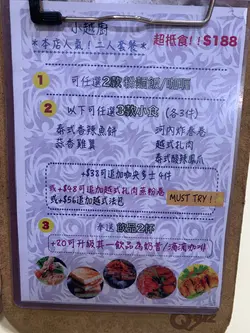 小越廚
*本店人氣！二人套餐* 超抵食!! $188
1 可任選2款粉麵飯/咖喱
2 以下可任選3款小食 (各3件)
泰式香辣魚餅 河內炸春卷
蒜香雞翼 越式扎肉
泰式酸辣鳳爪
+$38可追加咖央多士4件
或+$48可追加越式扎肉蒸粉卷
或+$56追加越式法包 MUST TRY!
3 奉送飲品2杯
+20可升級其一飲品為奶昔/滴滴咖啡